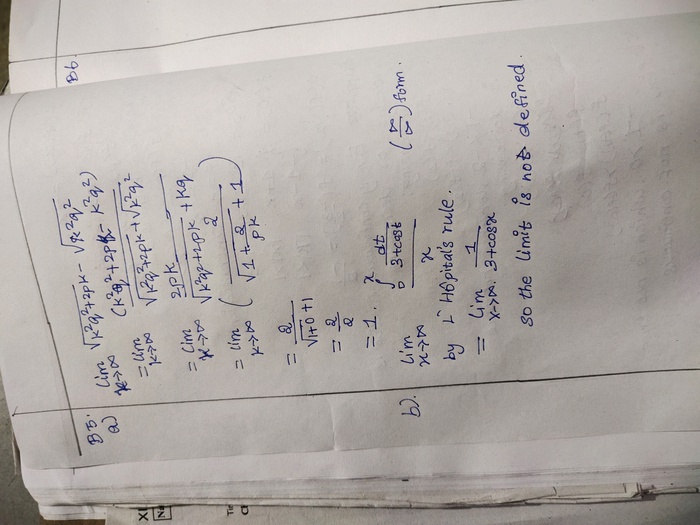 B5.
B6
a) lim k→∞ √k²q²+2pk - √k²q²
= lim k→∞ (k²q²+2pk - k²q²) / √k²q²+2pk + √k²q²
= lim k→∞ 2pk / √k²q²+2pk + kq
= lim k→∞ ( 2 / √1 + 2/pk + 1 )
= 2 / √1+0 +1
= 2/2
= 1.
b). lim x→∞ ∫₀ˣ dt/3+cost / x (∞/∞) form.
by L' Hôpital's rule.
= lim x→∞. 1/3+cosx
so the limit is not defined.